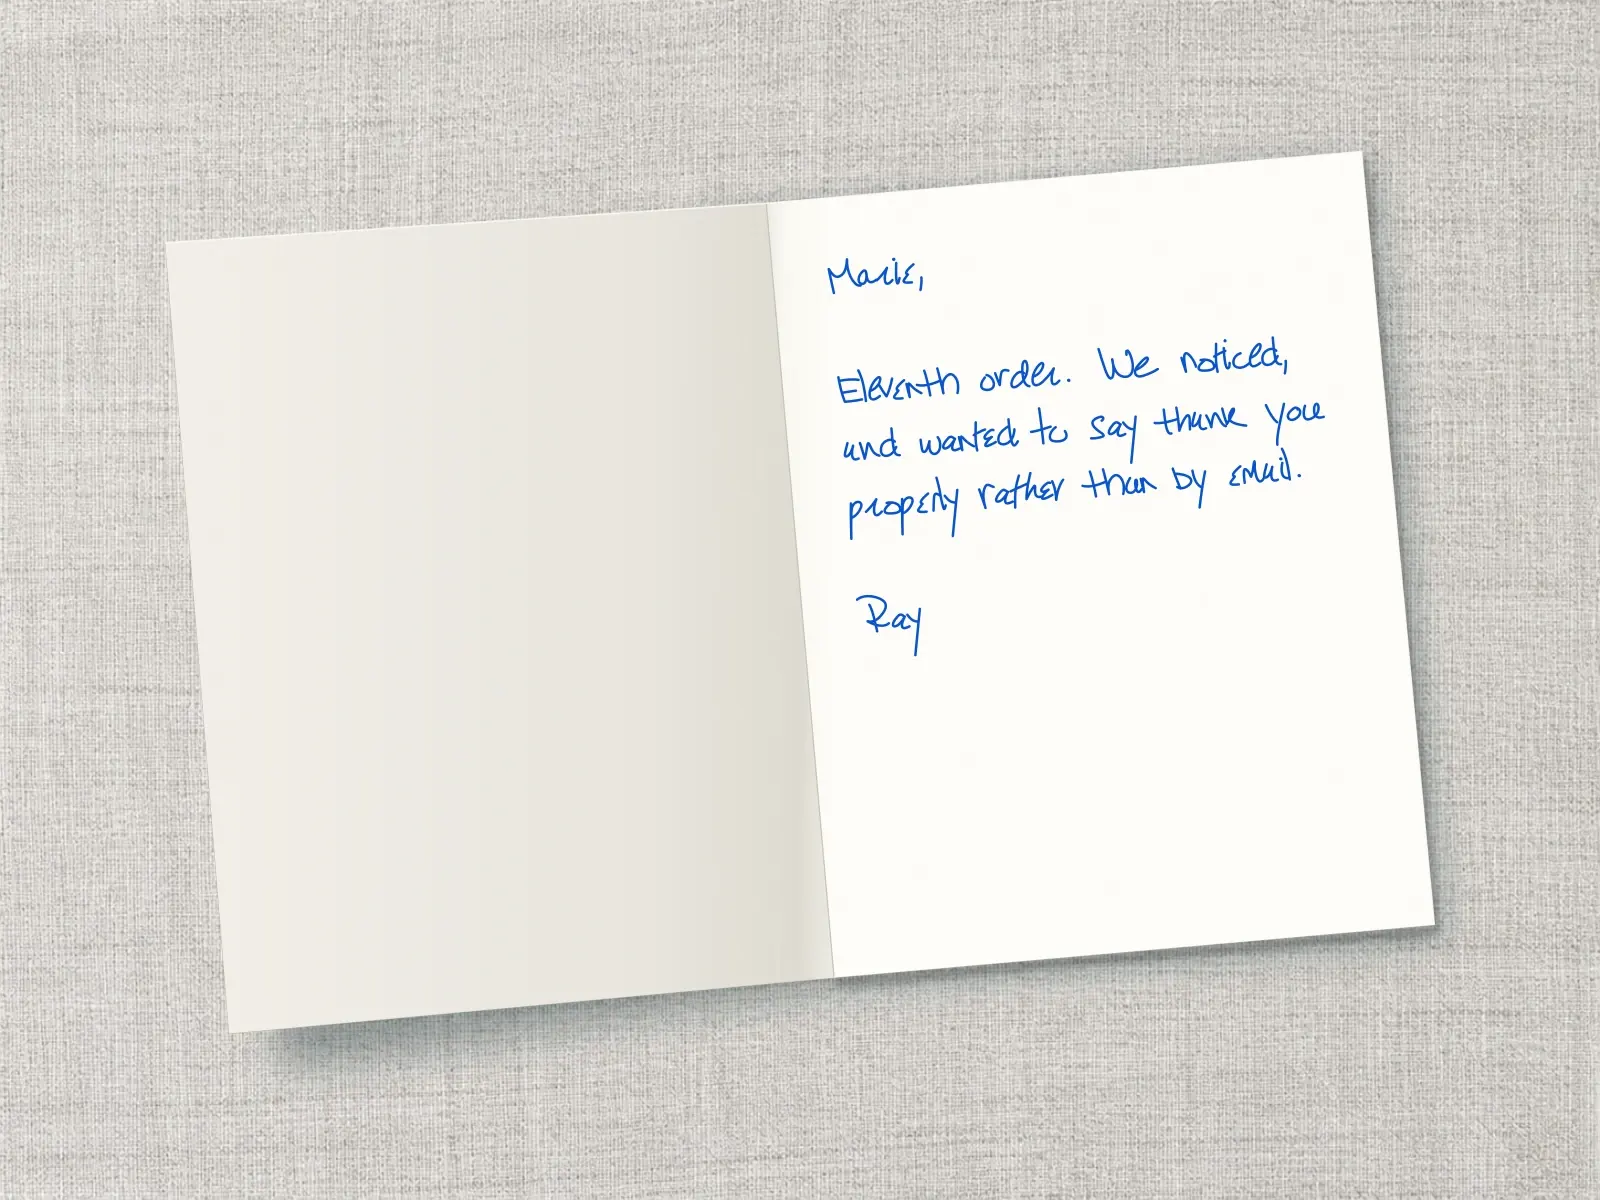 Marie,
Eleventh order. We noticed,
and wanted to say thank you
properly rather than by email.
Ray